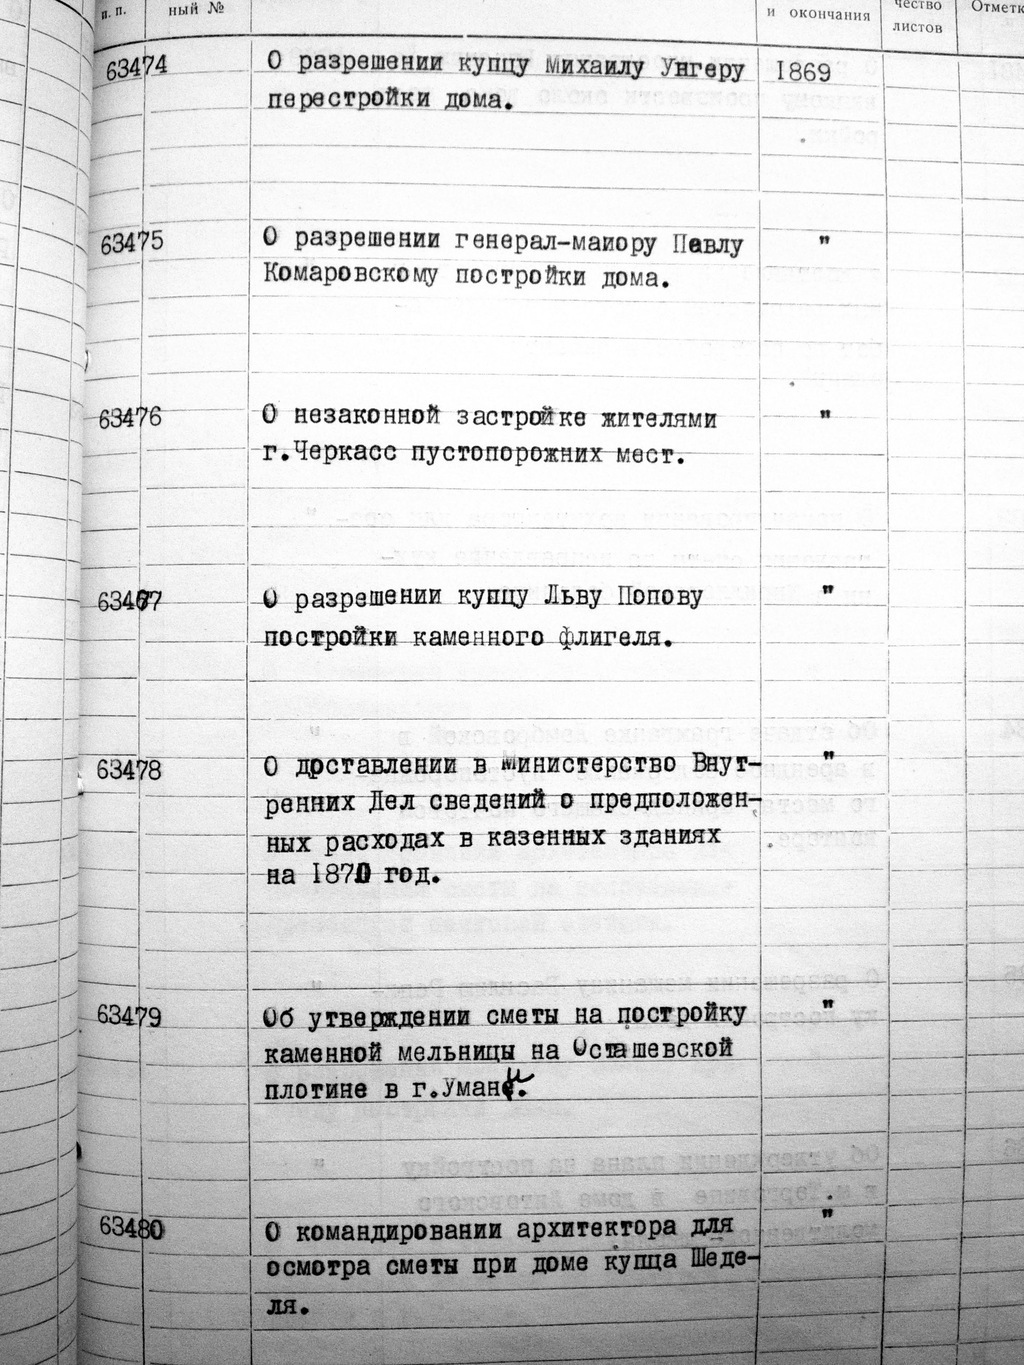 п. п.
ный №
и окончания
чество
листов
Отметк
63474 О разрешении купцу Михаилу Унгеру 1869
перестройки дома.
63475 О разрешении генерал-маиору Павлу "
Комаровскому постройки дома.
63476 О незаконной застройке жителями "
г.Черкасс пустопорожних мест.
63477 О разрешении купцу Льву Попову "
постройки каменного флигеля.
63478 О доставлении в Министерство Внут- "
ренних Дел сведений о предположен-
ных расходах в казенных зданиях
на 1870 год.
63479 Об утверждении сметы на постройку "
каменной мельницы на Осташевской
плотине в г.Умани.
63480 О командировании архитектора для "
осмотра сметы при доме купца Шеде-
ля.